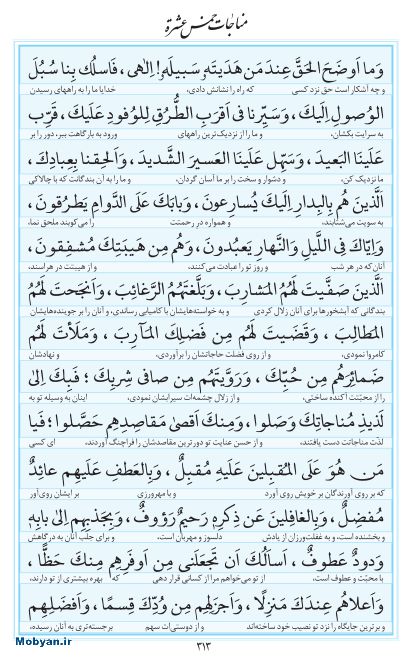 مناجات خمس عشرة
وَما اَوضَحَ الحَقَّ عِندَ مَن هَدَيتَهُ سَبيلَهُ! اِلٰهى، فَاسلُك بِنا سُبُلَ
و چه آشکار است حق نزد کسی که راه را نشانش دادی، خدایا ما را به راههای رسیدن
الوُصولِ اِلَيكَ، وَسَيِّرنا فى اَقرَبِ الطُّرُقِ لِلوُفودِ عَلَيكَ، قَرِّب
به سرایت بکشان، و ما را از نزدیک‌ترین راههای ورود به بارگاهت ببر، دور را بر
عَلَينَا البَعيدَ، وَسَهِّل عَلَينَا العَسيرَ الشَّديدَ، وَاَلحِقنا بِعِبادِكَ،
ما نزدیک کن، و دشوار و سخت را بر ما آسان گردان، و ما را به آن بندگانت که با چالاکی
الَّذينَ هُم بِالبِدارِ اِلَيكَ يُسارِعونَ، وَبابَكَ عَلَى الدَّوامِ يَطرُقونَ،
به سویت می‌شتابند، و همواره در رحمتت را می‌کوبند ملحق نما،
وَاِيّاكَ فِى اللَّيلِ وَالنَّهارِ يَعبُدونَ، وَهُم مِن هَيبَتِكَ مُشفِقونَ،
آنان‌که در هر شب و روز تو را عبادت می‌کنند، و از هیبتت در هراسند،
الَّذينَ صَفَّيتَ لَهُمُ المَشارِبَ، وَبَلَّغتَهُمُ الرَّغائِبَ، وَاَنجَحتَ لَهُمُ
بندگانی که آبشخورها برای آنان زلال کردی و به خواسته‌هایشان با کامیابی رساندی، و آنان را بر جوینده‌هایشان
المَطالِبَ، وَقَضَيتَ لَهُم مِن فَضلِكَ المَآرِبَ، وَمَلَأتَ لَهُم
کامروا نمودی، و از روی فضلت حاجاتشان را برآوردی، و نهادشان
ضَمائِرَهُم مِن حُبِّكَ، وَرَوَّيتَهُم مِن صافى شِربِكَ، فَبِكَ اِلىٰ
را از محبّتت آکنده ساختی، و از زلال چشمه‌ات سیرابشان نمودی، اینان به وسیله تو به
لَذيذِ مُناجاتِكَ وَصَلوا، وَمِنكَ اَقصىٰ مَقاصِدِهِم حَصَّلوا، فَيا
لذّت مناجاتت دست یافتند، و از حسن عنایت تو دورترین مقاصدشان را فراچنگ آوردند، ای کسی
مَن هُوَ عَلَى المُقبِلينَ عَلَيهِ مُقبِلٌ، وَبِالعَطفِ عَلَيهِم عائِدٌ
که بر روی آورندگان بر خویش روی آورد و با مهرورزی بر ایشان روی‌آور
مُفضِلٌ، وَبِالغافِلينَ عَن ذِكرِهِ رَحيمٌ رَؤوفٌ، وَبِجَذبِهِم اِلىٰ بابِهِ
و بخشنده است، و به غفلت‌ورزان از یادش دلسوز و مهربان است، و برای جلب آنان به درگاهش
وَدودٌ عَطوفٌ، اَسأَلُكَ اَن تَجعَلَنى مِن اَوفَرِهِم مِنكَ حَظًّا،
با محبّت و عطوفت است، از تو می‌خواهم مرا از کسانی قرار دهی که بهره بیشتری از تو دارند،
وَاَعلاهُم عِندَكَ مَنزِلًا، وَاَجزَلِهِم مِن وُدِّكَ قِسمًا، وَاَفضَلِهِم
و برترین جایگاه را نزد تو نصیب خود ساخته‌اند و از دوستی‌ات سهم برجسته‌تری به آنان رسیده،
۳۱۳
Mobyan.ir